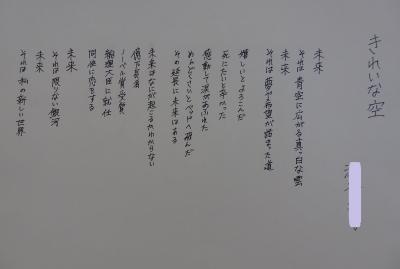 きれいな空
未来
それは青空に広がる真っ白な雲
未来
それは夢や希望が詰まった道
嬉しいとよろこんだ
死にたいと辛かった
感動して涙があふれた
めんどくさいとベッドへ挟んだ
その延長に未来はある
未来はなにが起こるかわからない
億万長者
ノーベル賞受賞
総理大臣に就任
同性に恋をする
未来
未来
それは限りない銀河
それは私の新しい世界